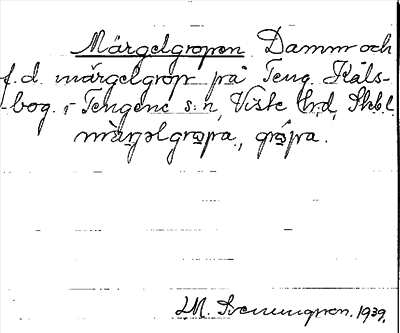 Märgelgropen Damm och
f.d. märgelgrop på Teng. Kåls-
-bog. i Tengene s:n, Viste hrd, Skbl.
märgəlgrɷpa, grɷpa.
LM. Svenungsson. 1939.